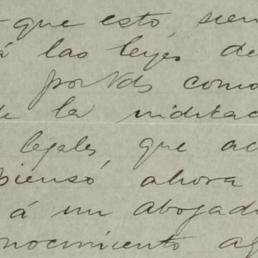 que esto sien
á las leyes de
por Vds como
de la indicac
légales, que ac
piensó ahora
á un abogad
onocimiento ag